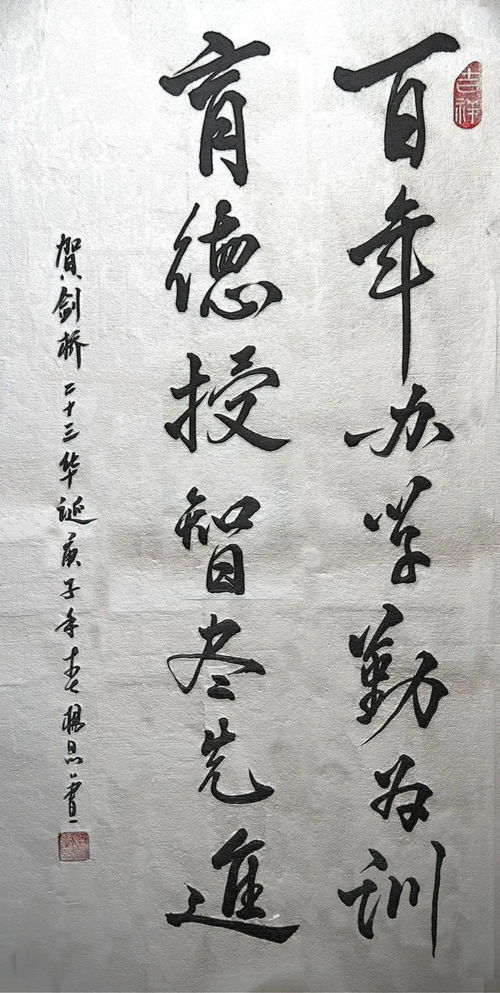 百年办学勤为训
吉祥
育德授智尽先進
贺剑桥二十三华诞庚子年